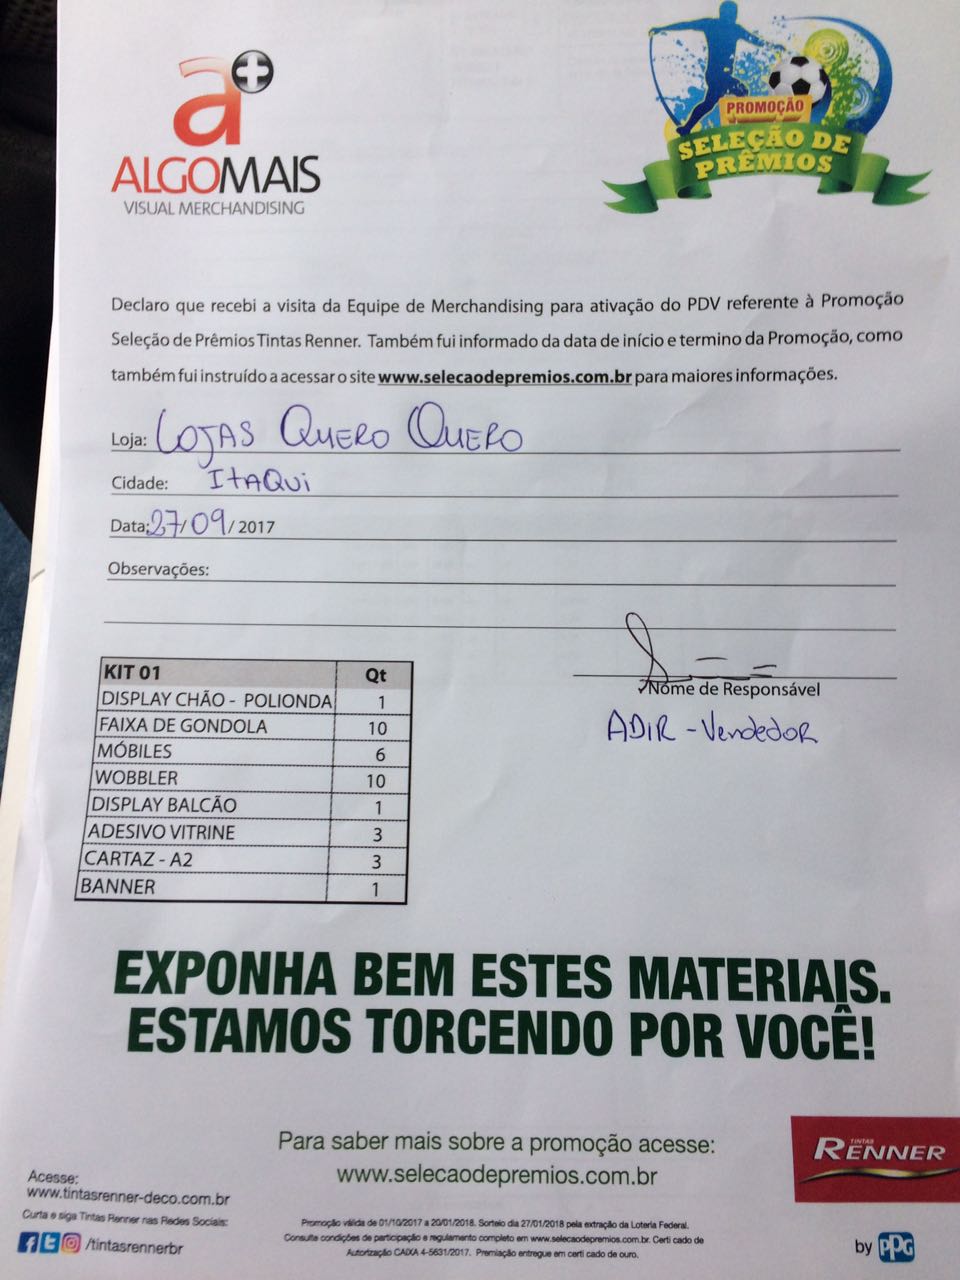 a+
ALGOMAIS
VISUAL MERCHANDISING
PROMOÇÃO
SELEÇÃO DE
PRÊMIOS
Declaro que recebi a visita da Equipe de Merchandising para ativação do PDV referente à Promoção
Seleção de Prêmios Tintas Renner. Também fui informado da data de início e termino da Promoção, como
também fui instruído a acessar o site www.selecaodepremios.com.br para maiores informações.
Loja: LOJAS QUERO QUERO
Cidade: ITAQUI
Data: 27/09/2017
Observações:
Nome de Responsável
ADIR - Vendedor
KIT 01 Qt
DISPLAY CHÃO - POLIONDA 1
FAIXA DE GONDOLA 10
MÓBILES 6
WOBBLER 10
DISPLAY BALCÃO 1
ADESIVO VITRINE 3
CARTAZ - A2 3
BANNER 1
EXPONHA BEM ESTES MATERIAIS.
ESTAMOS TORCENDO POR VOCÊ!
Para saber mais sobre a promoção acesse:
www.selecaodepremios.com.br
TINTAS
RENNER
Acesse:
www.tintasrenner-deco.com.br
Curta e siga Tintas Renner nas Redes Sociais:
/tintasrennerbr
Promoção válida de 01/10/2017 a 20/01/2018. Sorteio dia 27/01/2018 pela extração da Loteria Federal.
Consulte condições de participação e regulamento completo em www.selecaodepremios.com.br. Certi cado de
Autorização CAIXA 4-5631/2017. Premiação entregue em certi cado de ouro.
by PPG